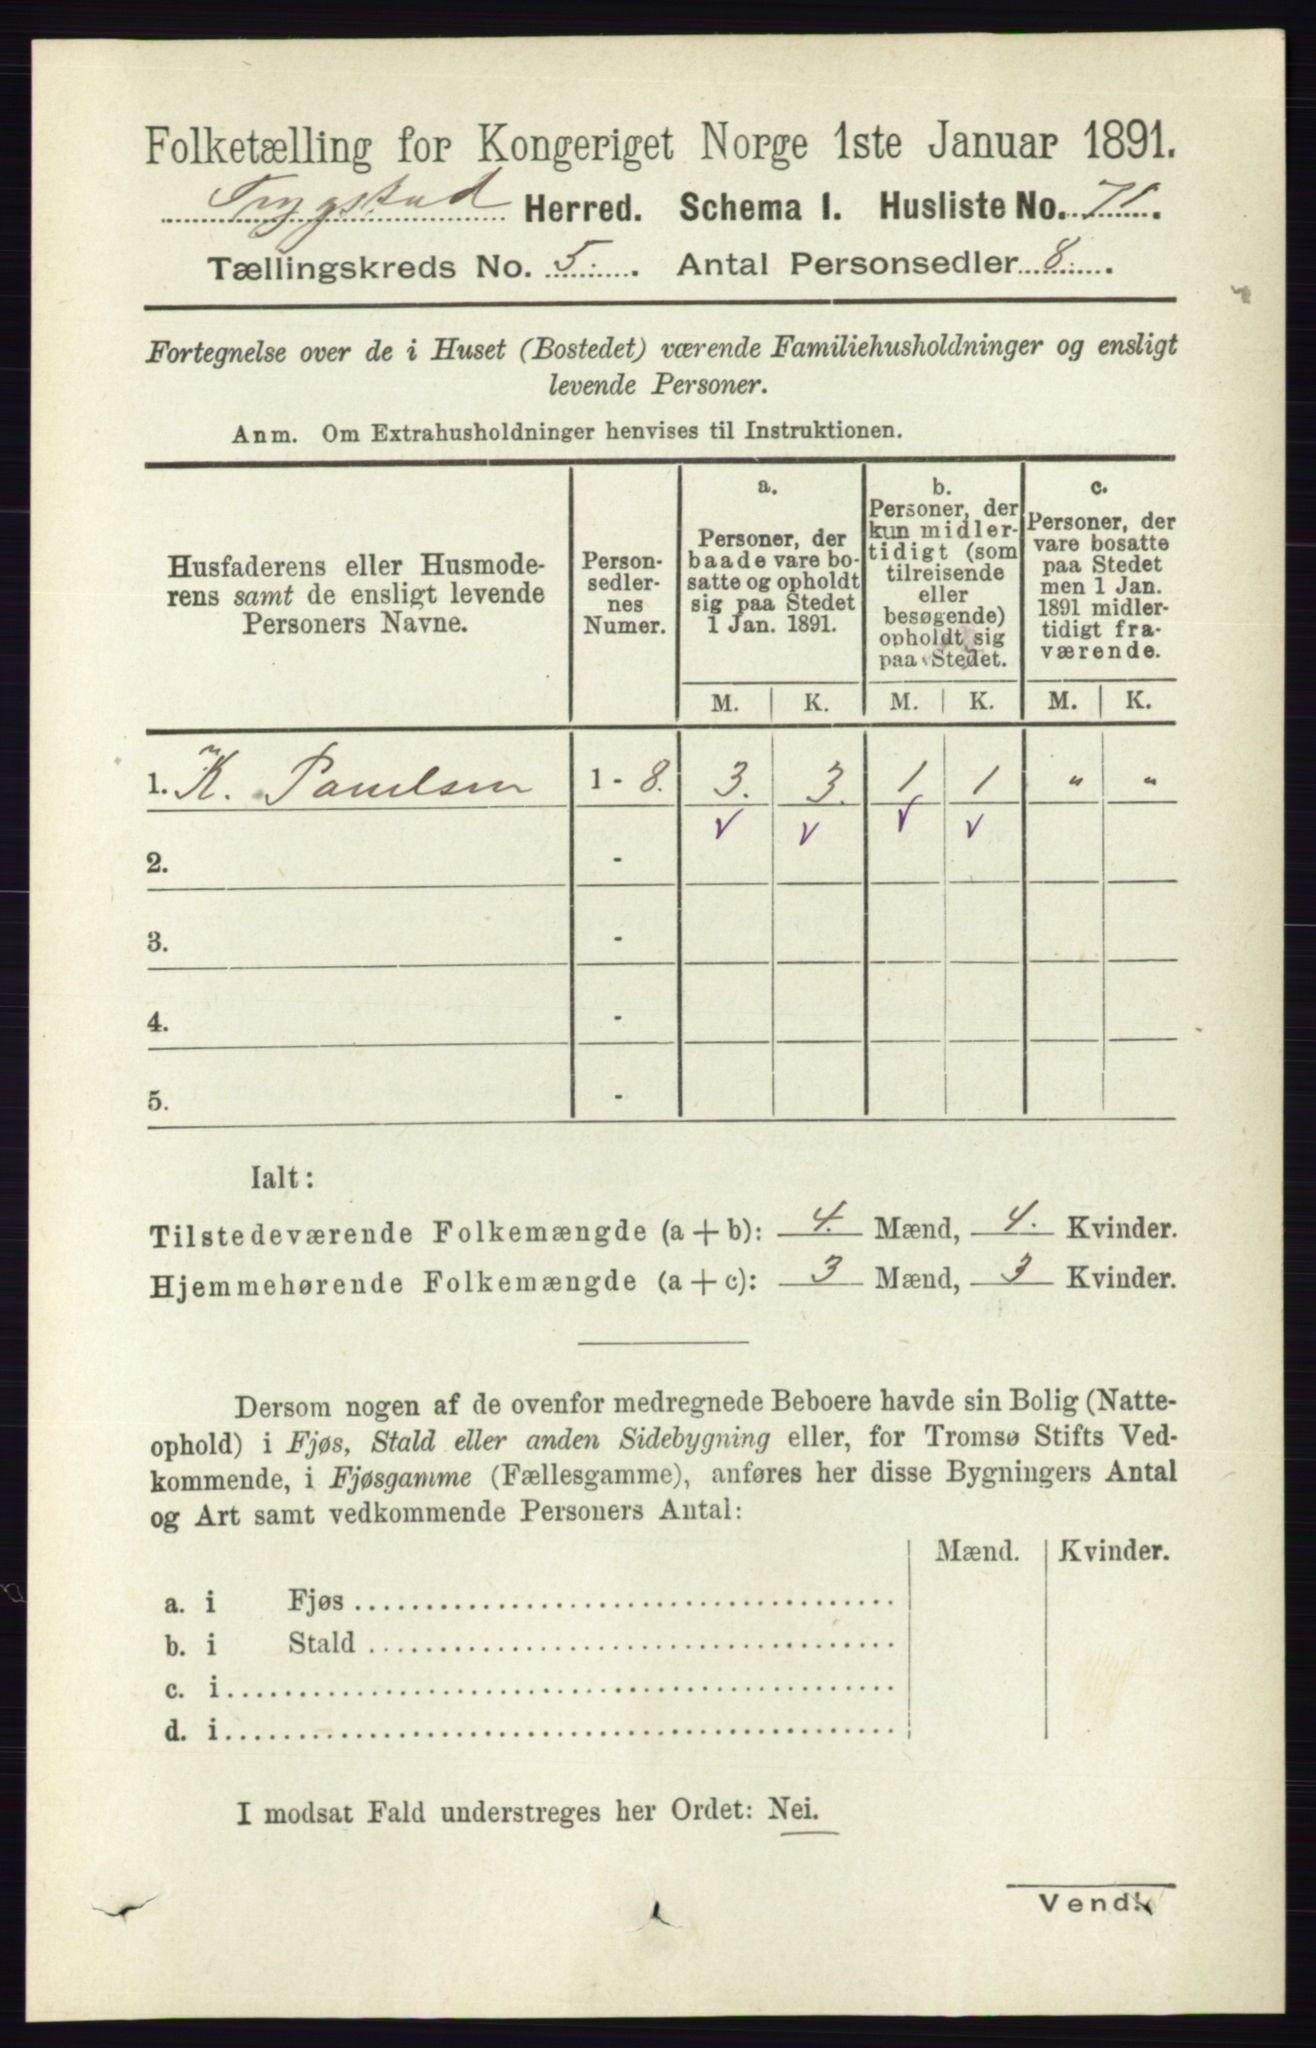 Folketælling for Kongeriget Norge 1ste Januar 1891.
Trygstad Herred. Schema I. Husliste No. 71.
Tællingskreds No. 5. Antal Personsedler 8.
Fortegnelse over de i Huset (Bostedet) værende Familiehusholdninger og ensligt
levende Personer.
Anm. Om Extrahusholdninger henvises til Instruktionen.
Husfaderens eller Husmode-
rens samt de ensligt levende
Personers Navne.
Person-
sedler-
nes
Numer.
a.
Personer, der
baade vare bo-
satte og opholdt
sig paa Stedet
1 Jan. 1891.
b.
Personer, der
kun midler-
tidigt (som
tilreisende
eller
besøgende)
opholdt sig
paa Stedet.
c.
Personer, der
vare bosatte
paa Stedet
men 1 Jan.
1891 midler-
tidigt fra-
værende.
M. K. M. K. M. K.
1. K. Paulsen 1 - 8. 3. 3. 1 1 " "
v v v v
2. -
3. -
4. -
5. -
Ialt:
Tilstedeværende Folkemængde (a + b): 4. Mænd, 4. Kvinder.
Hjemmehørende Folkemængde (a + c): 3 Mænd, 3 Kvinder.
Dersom nogen af de ovenfor medregnede Beboere havde sin Bolig (Natte-
ophold) i Fjøs, Stald eller anden Sidebygning eller, for Tromsø Stifts Ved-
kommende, i Fjøsgamme (Fællesgamme), anføres her disse Bygningers Antal
og Art samt vedkommende Personers Antal:
Mænd. Kvinder.
a. i Fjøs
b. i Stald
c. i
d. i
I modsat Fald understreges her Ordet: Nei.
Vend!